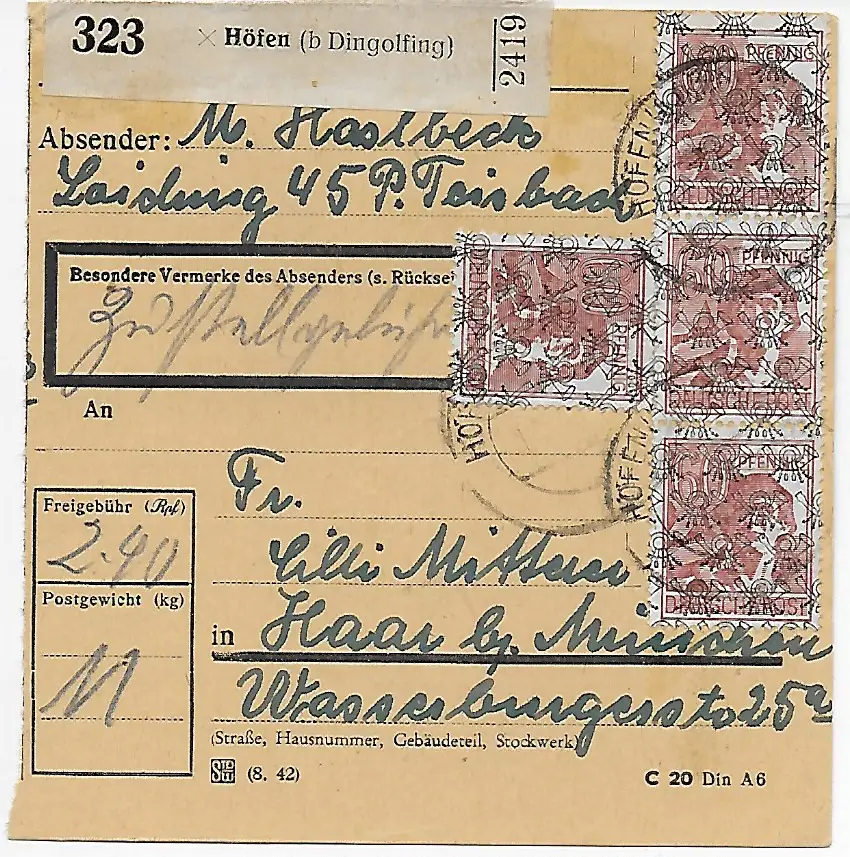 323 Höfen (b Dingolfing) 2419
Absender: M. Haslbeck
Loiching 45 P. Teisbach
Besondere Vermerke des Absenders (s. Rücksei
Zustellgebühr
An
Fr.
Cilli Mittern
in Haar b. München
Wasserburgerstr 25a
(Straße, Hausnummer, Gebäudeteil, Stockwerk)
Freigebühr (Rpf)
2.40
Postgewicht (kg)
11
(8. 42)
C 20 Din A6
60 PFENNIG
DEUTSCHE POST
60 PFENNIG
60 PFENNIG
DEUTSCHE POST
60 PFENNIG
DEUTSCHE POST
HÖFEN
HÖF
HÖFEN